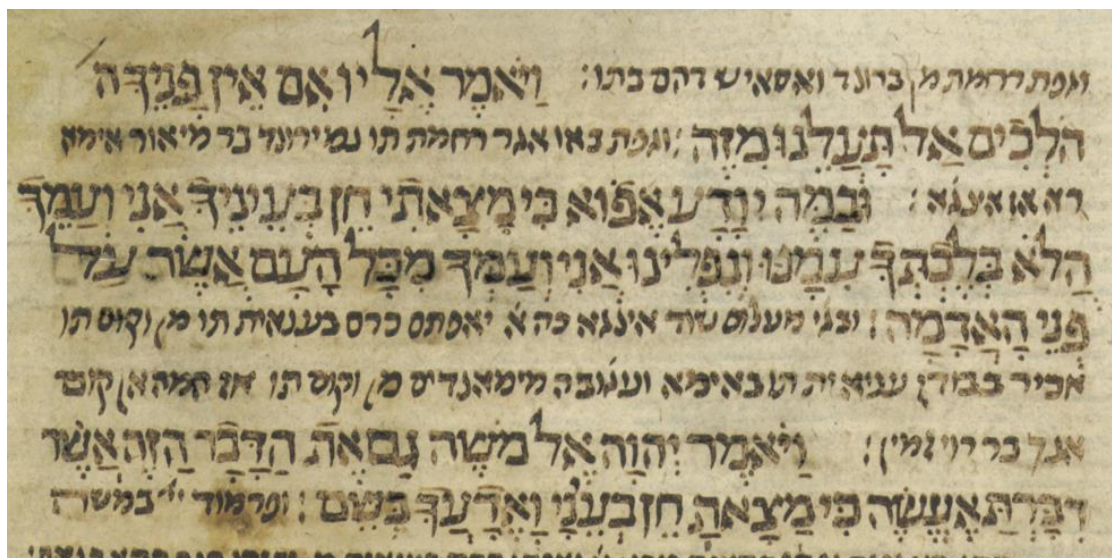 וגפת רחמת מן ברונד ואסאיש דהם בתו : וַיֹּאמֶר אֵלָיו אִם אֵין פָּנֶיךָ ה
הֹלְכִים אַל תַּעֲלֵנוּ מִזֶּה : וגפת באו אגר רחמת תו נמירונד בר מיאור אימא
רא אז אינגא : וּבַמֶּה יִוָּדַע אֵפוֹא כִּי מָצָאתִי חֵן בְּעֵינֶיךָ אֲנִי וְעַמֶּךָ
הֲלֹא בְּלֶכְתְּךָ עִמָּנוּ וְנִפְלִינוּ אֲנִי וְעַמְּךָ מִכָּל הָעָם אֲשֶׁר עַל
פְּנֵי הָאֲדָמָה : מעלום שוד אינגא יאפתם כרם בענאית תו מן וקום תו
בבודן ענאית תו באימא מימאנדים מן וקום תו אז המה אן קום
אנך בר רוי זמין : וַיֹּאמֶר יְהוָה אֶל מֹשֶׁה גַּם אֶת הַדָּבָר הַזֶּה אֲשֶׁר
דִּבַּרְתָּ אֶעֱשֶׂה כִּי מָצָאתָ חֵן בְעֵנַי וָאֵדָעֲךָ בְּשֵׁם : ופרמוד ייי במשה